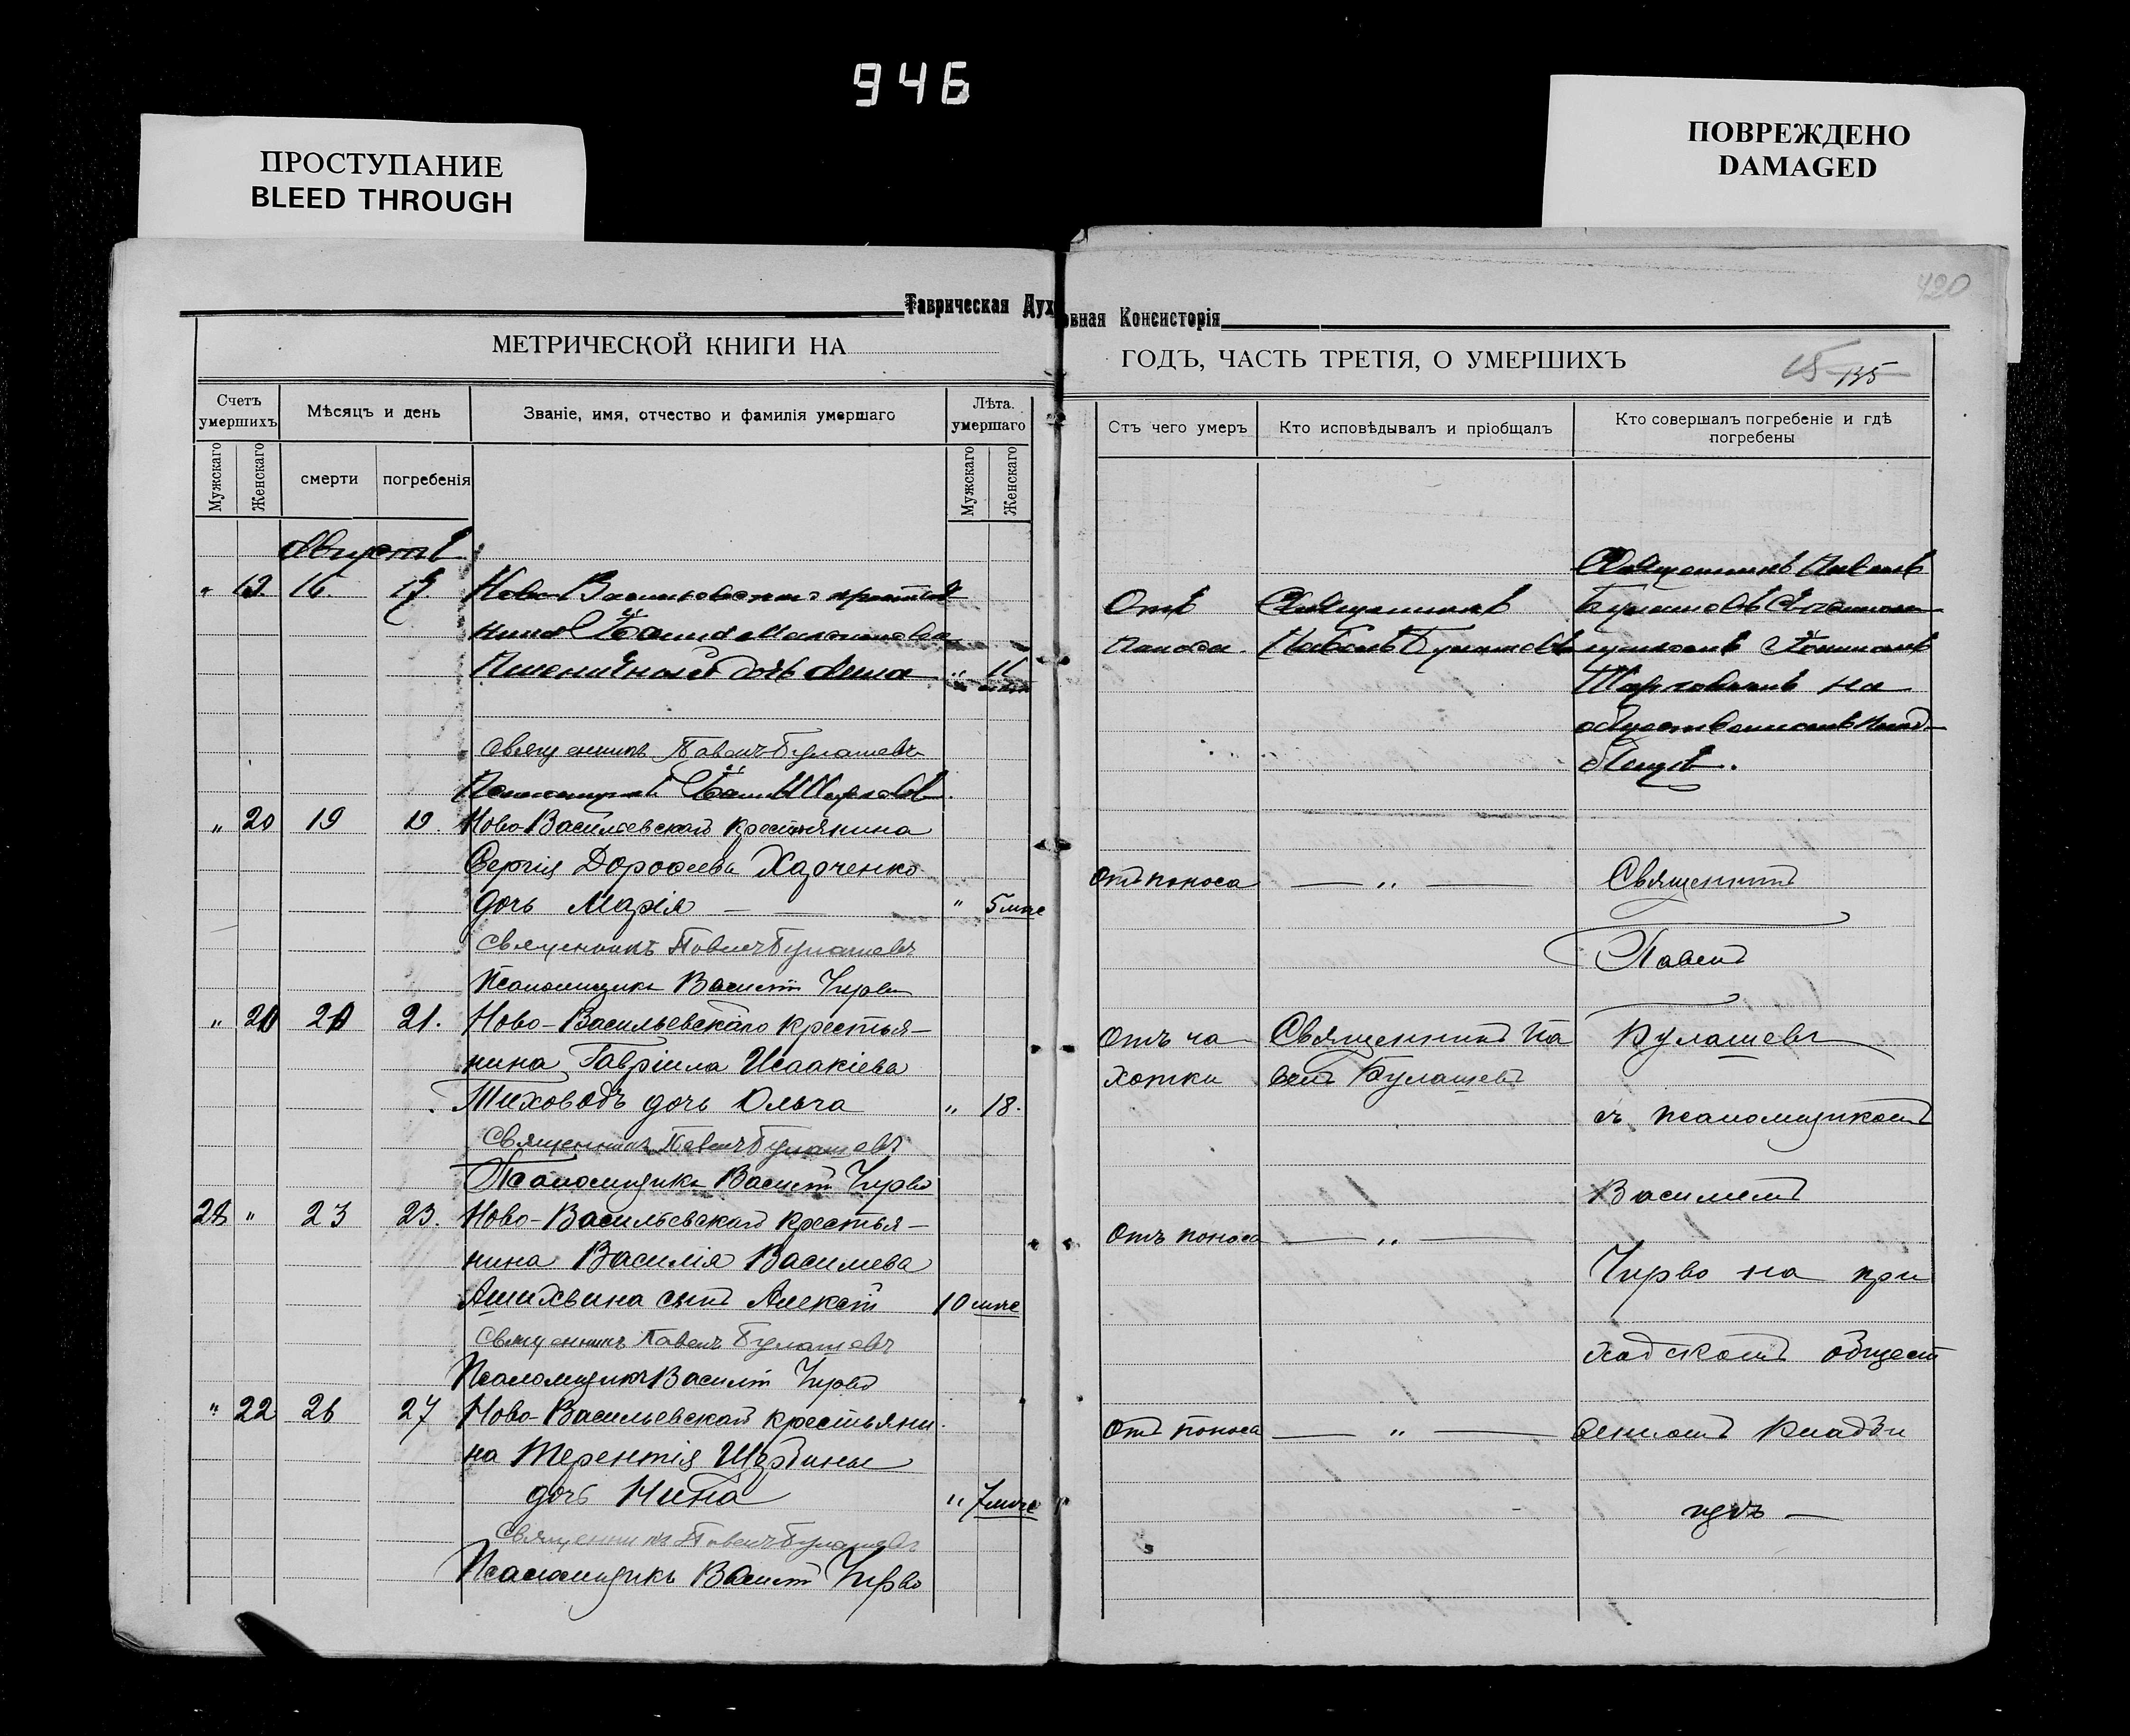 946
ПРОСТУПАНИЕ
BLEED THROUGH
ПОВРЕЖДЕНО
DAMAGED
420
Таврическая Духовная Консисторія
МЕТРИЧЕСКОЙ КНИГИ НА
ГОДЪ, ЧАСТЬ ТРЕТІЯ, О УМЕРШИХЪ
135
Счетъ умершихъ
Мѣсяцъ и день
Званіе, имя, отчество и фамилія умершаго
Лѣта. умершаго
Отъ чего умеръ
Кто исповѣдывалъ и пріобщалъ
Кто совершалъ погребеніе и гдѣ погребены
Мужскаго
Женскаго
смерти
погребенія
Мужскаго
Женскаго
Августъ
" 19 16. 17. Ново-Васильевскаго крестья
нина
Пшеничнаго дочь Анна "
Отъ
поноса.
Священникъ
Павелъ Булашевъ
Священникъ Павелъ
Булашевъ
на
общественномъ клад-
бищѣ.
Священникъ Павелъ Булашевъ
Псаломщикъ
" 20 19 19. Ново-Васильевскаго крестьянина
Сергія Дороѳеева Харченко
дочь Марія — — " 5 мѣс
Отъ поноса — " —
Священникъ Павелъ Булашевъ
Псаломщикъ Василій Чирво
" 21. Ново-Васильевскаго крестья-
нина Гавріила Исаакіева
Тиховодъ дочь Ольга " 18.
Отъ ча
хотки
Священникъ Па
велъ Булашевъ
Священникъ Павелъ Булашевъ
Псаломщикъ Василій Чирво
" 23 23. Ново-Васильевскаго крестья-
нина Василія Васильева
сынъ Алексѣй 10 мѣс
Отъ поноса — " —
Священникъ Павелъ Булашевъ
Псаломщикъ Василій Чирво
" 22 26 27 Ново-Васильевскаго крестьяни
на Терентія Щербины
дочь Нина " 7 мѣс
Отъ поноса — " —
Священникъ Павелъ Булашевъ
Псаломщикъ Василій Чирво
Священникъ
Павелъ
Булашевъ
съ псаломщикомъ
Василіемъ
Чирво на при
ходскомъ общест
венномъ кладби
щѣ —